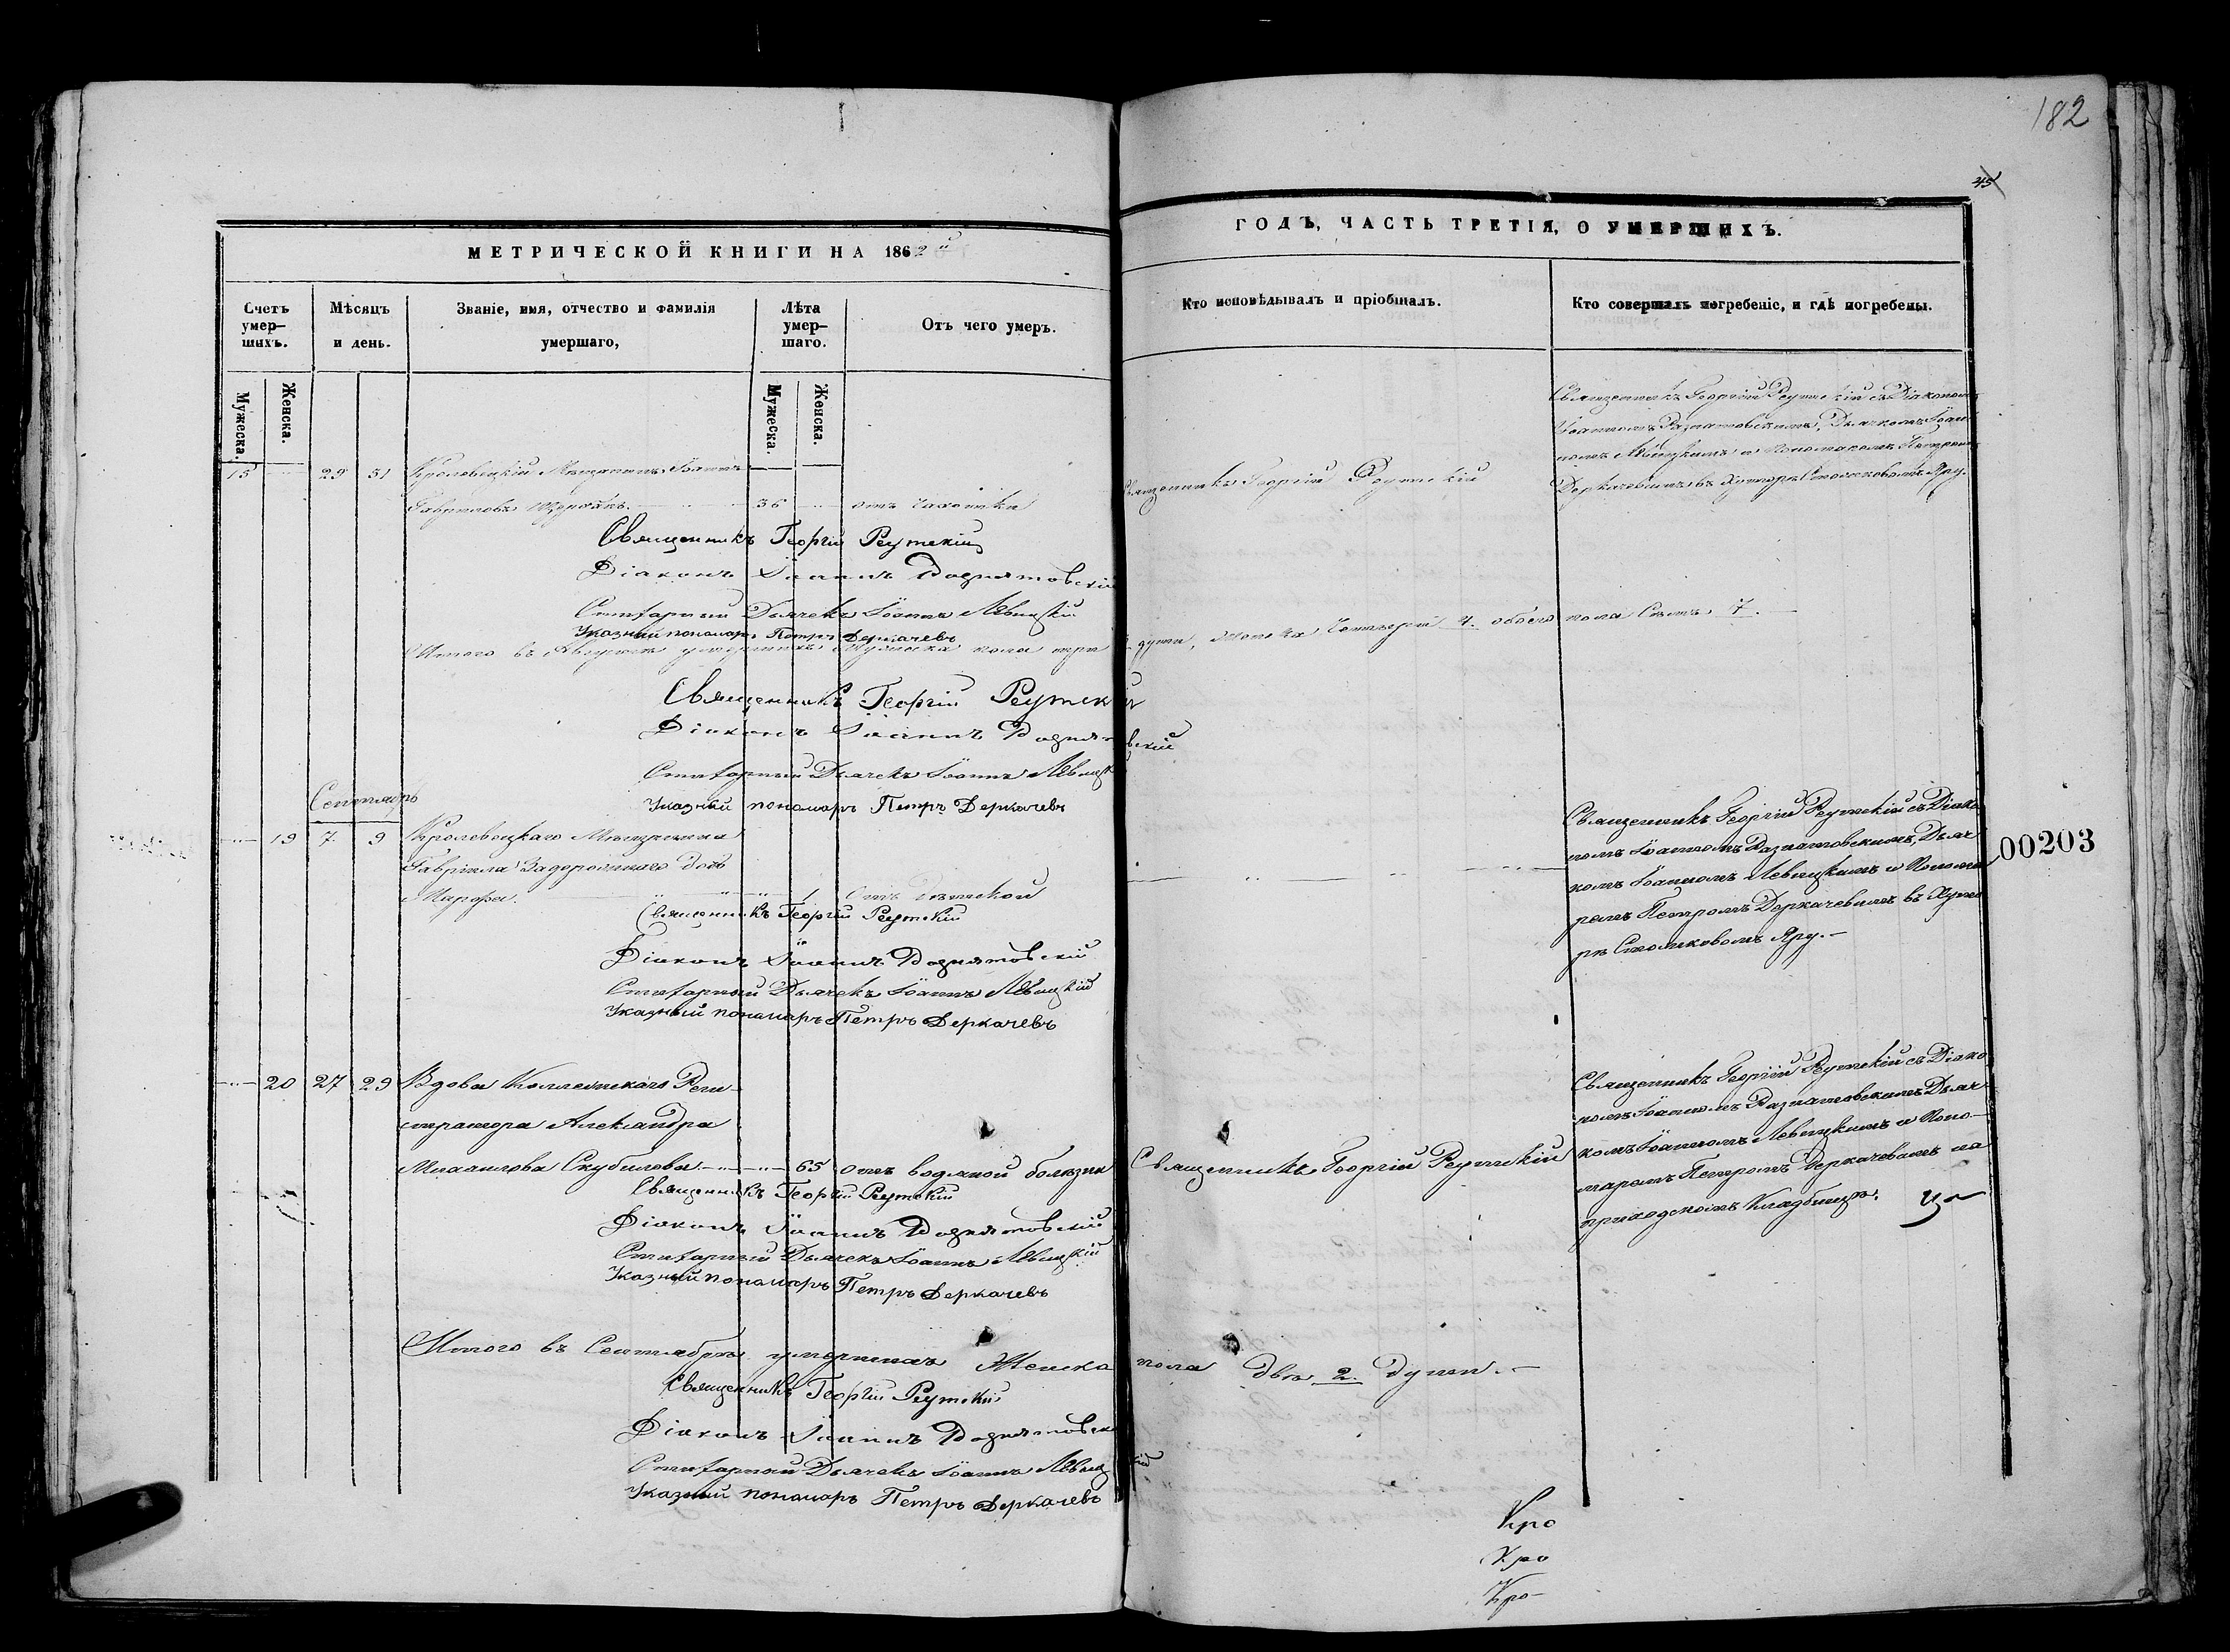 182
45
МЕТРИЧЕСКОЙ КНИГИ НА 1862й
ГОДЪ, ЧАСТЬ ТРЕТІЯ, О УМЕРШИХЪ.
Счетъ умер-шихъ.
Мѣсяцъ и день.
Званіе, имя, отчество и фамилія умершаго,
Лѣта умер-шаго.
Отъ чего умеръ.
Кто исповѣдывалъ и пріобщалъ.
Кто совершалъ погребеніе, и гдѣ погребены.
Мужеска.
Женска.
Мужеска.
Женска.
15 29 31 Кролевецкій Мѣщанинъ Іоаннъ
Гавриловъ 36 отъ чахотки
Священникъ Георгій Реутскій
Священникъ Георгій Реутскій съ Діакономъ
Іоанномъ Разнатовскимъ, Дьячкомъ Іоан
номъ Левицкимъ и Пономаремъ Петромъ
Деркачевымъ въ Хуторѣ Стожковомъ Яру.
Священникъ Георгій Реутскій
Діаконъ Іоаннъ Рознятовскій
Штатный Дьячекъ Іоаннъ Левицкій
Указный пономарь Петръ Деркачевъ
Итого въ Августѣ умершихъ Мужеска пола три 3 души, Женска Четыре 4. обоего пола Семь 7.
Священникъ Георгій Реутскій
Діаконъ Іоаннъ Рознятовскій
Штатный Дьячекъ Іоаннъ Левицкій
Указный пономарь Петръ Деркачевъ
Сентябрь
19 7 9 Кролевецкаго Мѣщанина
Гавріила Задорожнаго дочь
Марфа. 1 Отъ дѣтской
Священникъ Георгій Реутскій съ Діако
номъ Іоанномъ Разнатовскимъ, Дьяч
комъ Іоанномъ Левицкимъ и Понома
ремъ Петромъ Деркачевымъ въ Хуто
рѣ Стожковомъ Яру.
00203
Священникъ Георгій Реутскій
Діаконъ Іоаннъ Рознятовскій
Штатный Дьячекъ Іоаннъ Левицкій
Указный пономарь Петръ Деркачевъ
20 27 29 Вдова Коллежскаго Реги-
стратора Александра
Михаилова Скубилова 65 отъ водяной болѣзни
Священникъ Георгій Реутскій
Священникъ Георгій Реутскій съ Діако
номъ Іоанномъ Разнатовскимъ Дьяч
комъ Іоанномъ Левицкимъ и Поно-
маремъ Петромъ Деркачевымъ на
приходскомъ Кладбищѣ.
Священникъ Георгій Реутскій
Діаконъ Іоаннъ Рознятовскій
Штатный Дьячекъ Іоаннъ Левицкій
Указный пономарь Петръ Деркачевъ
Итого въ Сентябрѣ умершихъ Женска пола двѣ 2. души.
Священникъ Георгій Реутскій
Діаконъ Іоаннъ Рознятовскій
Штатный Дьячекъ Іоаннъ Левицкій
Указный пономарь Петръ Деркачевъ
Кро
Кро
Кро-